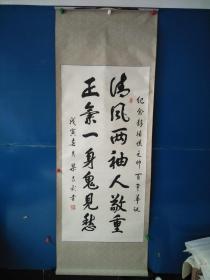 纪念彭德怀元帅百年华诞
清风两袖人敬重
正气一身鬼见愁
戊寅春月
书